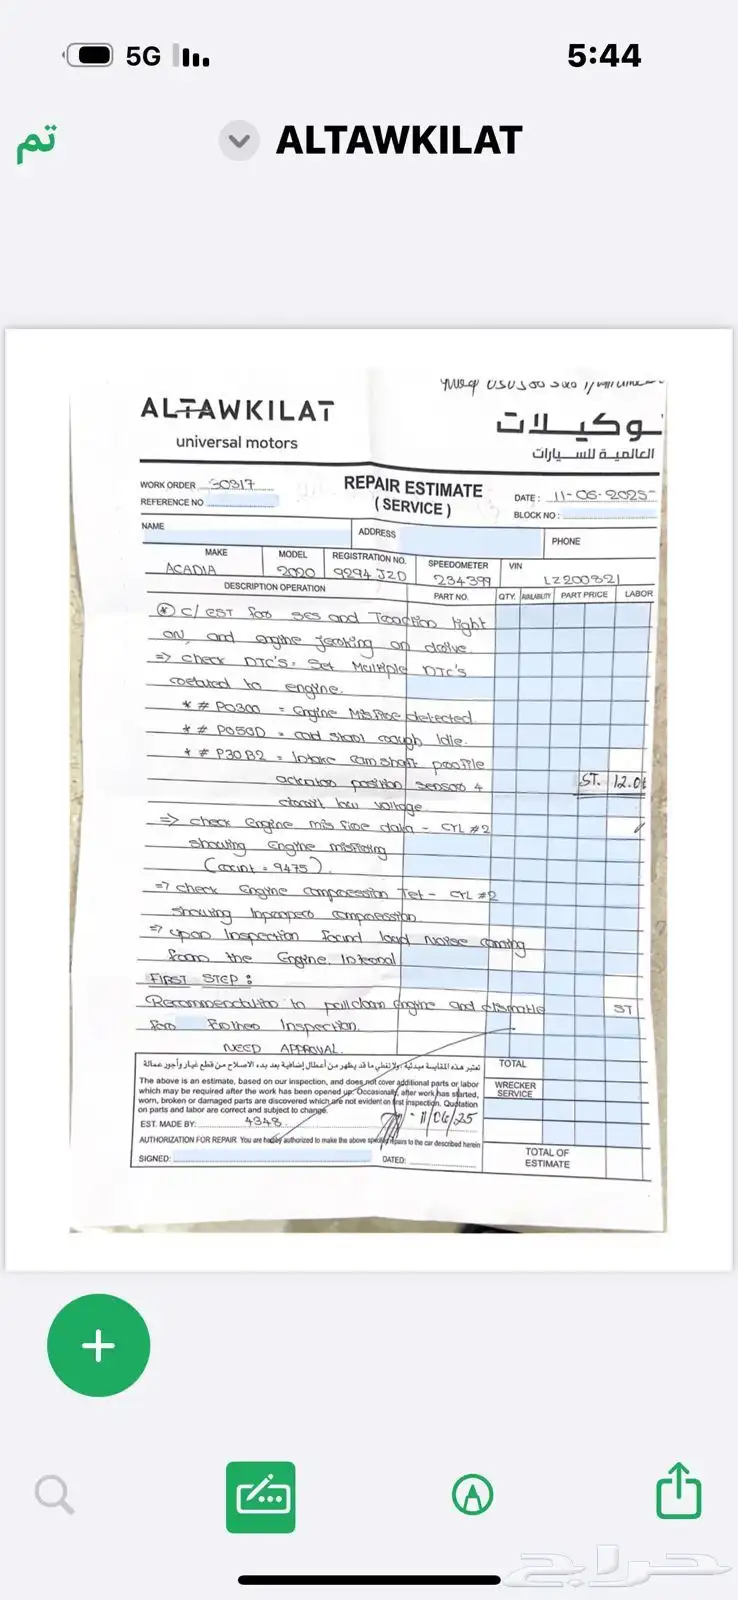 5G 5:44
تم ALTAWKILAT
ALTAWKILAT
universal motors
توكيلات
العالمية للسيارات
WORK ORDER 30317
REFERENCE NO
REPAIR ESTIMATE
( SERVICE )
DATE : 11-06-2025
BLOCK NO :
NAME ADDRESS PHONE
MAKE MODEL REGISTRATION NO. SPEEDOMETER VIN
ACADIA 2020 9294 JZD 234399 LZ200821
DESCRIPTION OPERATION PART NO. QTY. AVAILABILITY PART PRICE LABOR
* C/ EST for SES and Traction light
on, and engine jerking on drive
=> check DTC's. Set Multiple DTC's
related to engine.
* # P0300 = Engine Misfire detected.
* # P050D = cold start rough Idle.
* # P30B2 = Intake camshaft profile
actuator position sensor 4 ST. 12.0
circuit low voltage
=> check Engine misfire data - CYL #2
showing Engine misfiring
(count = 9475).
=> check Engine compression Tet - CYL #2
showing Inproper compression.
=> upon Inspection found loud noise coming
from the Engine. Internal
FIRST STEP :
Recommendation to pulldown engine and dismatle ST
for Further Inspection.
NEED APPROVAL.
تعتبر هذه المقايسة مبدئية، ولا تغطي ما قد يظهر من أعطال إضافية بعد بدء الاصلاح من قطع غيار وأجور عمالة
The above is an estimate, based on our inspection, and does not cover additional parts or labor
which may be required after the work has been opened up. Occasionally, after work has started,
worn, broken or damaged parts are discovered which are not evident on first inspection. Quotation
on parts and labor are correct and subject to change.
EST. MADE BY: 4348 11/06/25
AUTHORIZATION FOR REPAIR. You are hereby authorized to make the above specified repairs to the car described herein
SIGNED: DATED:
TOTAL
WRECKER
SERVICE
TOTAL OF
ESTIMATE
حراج